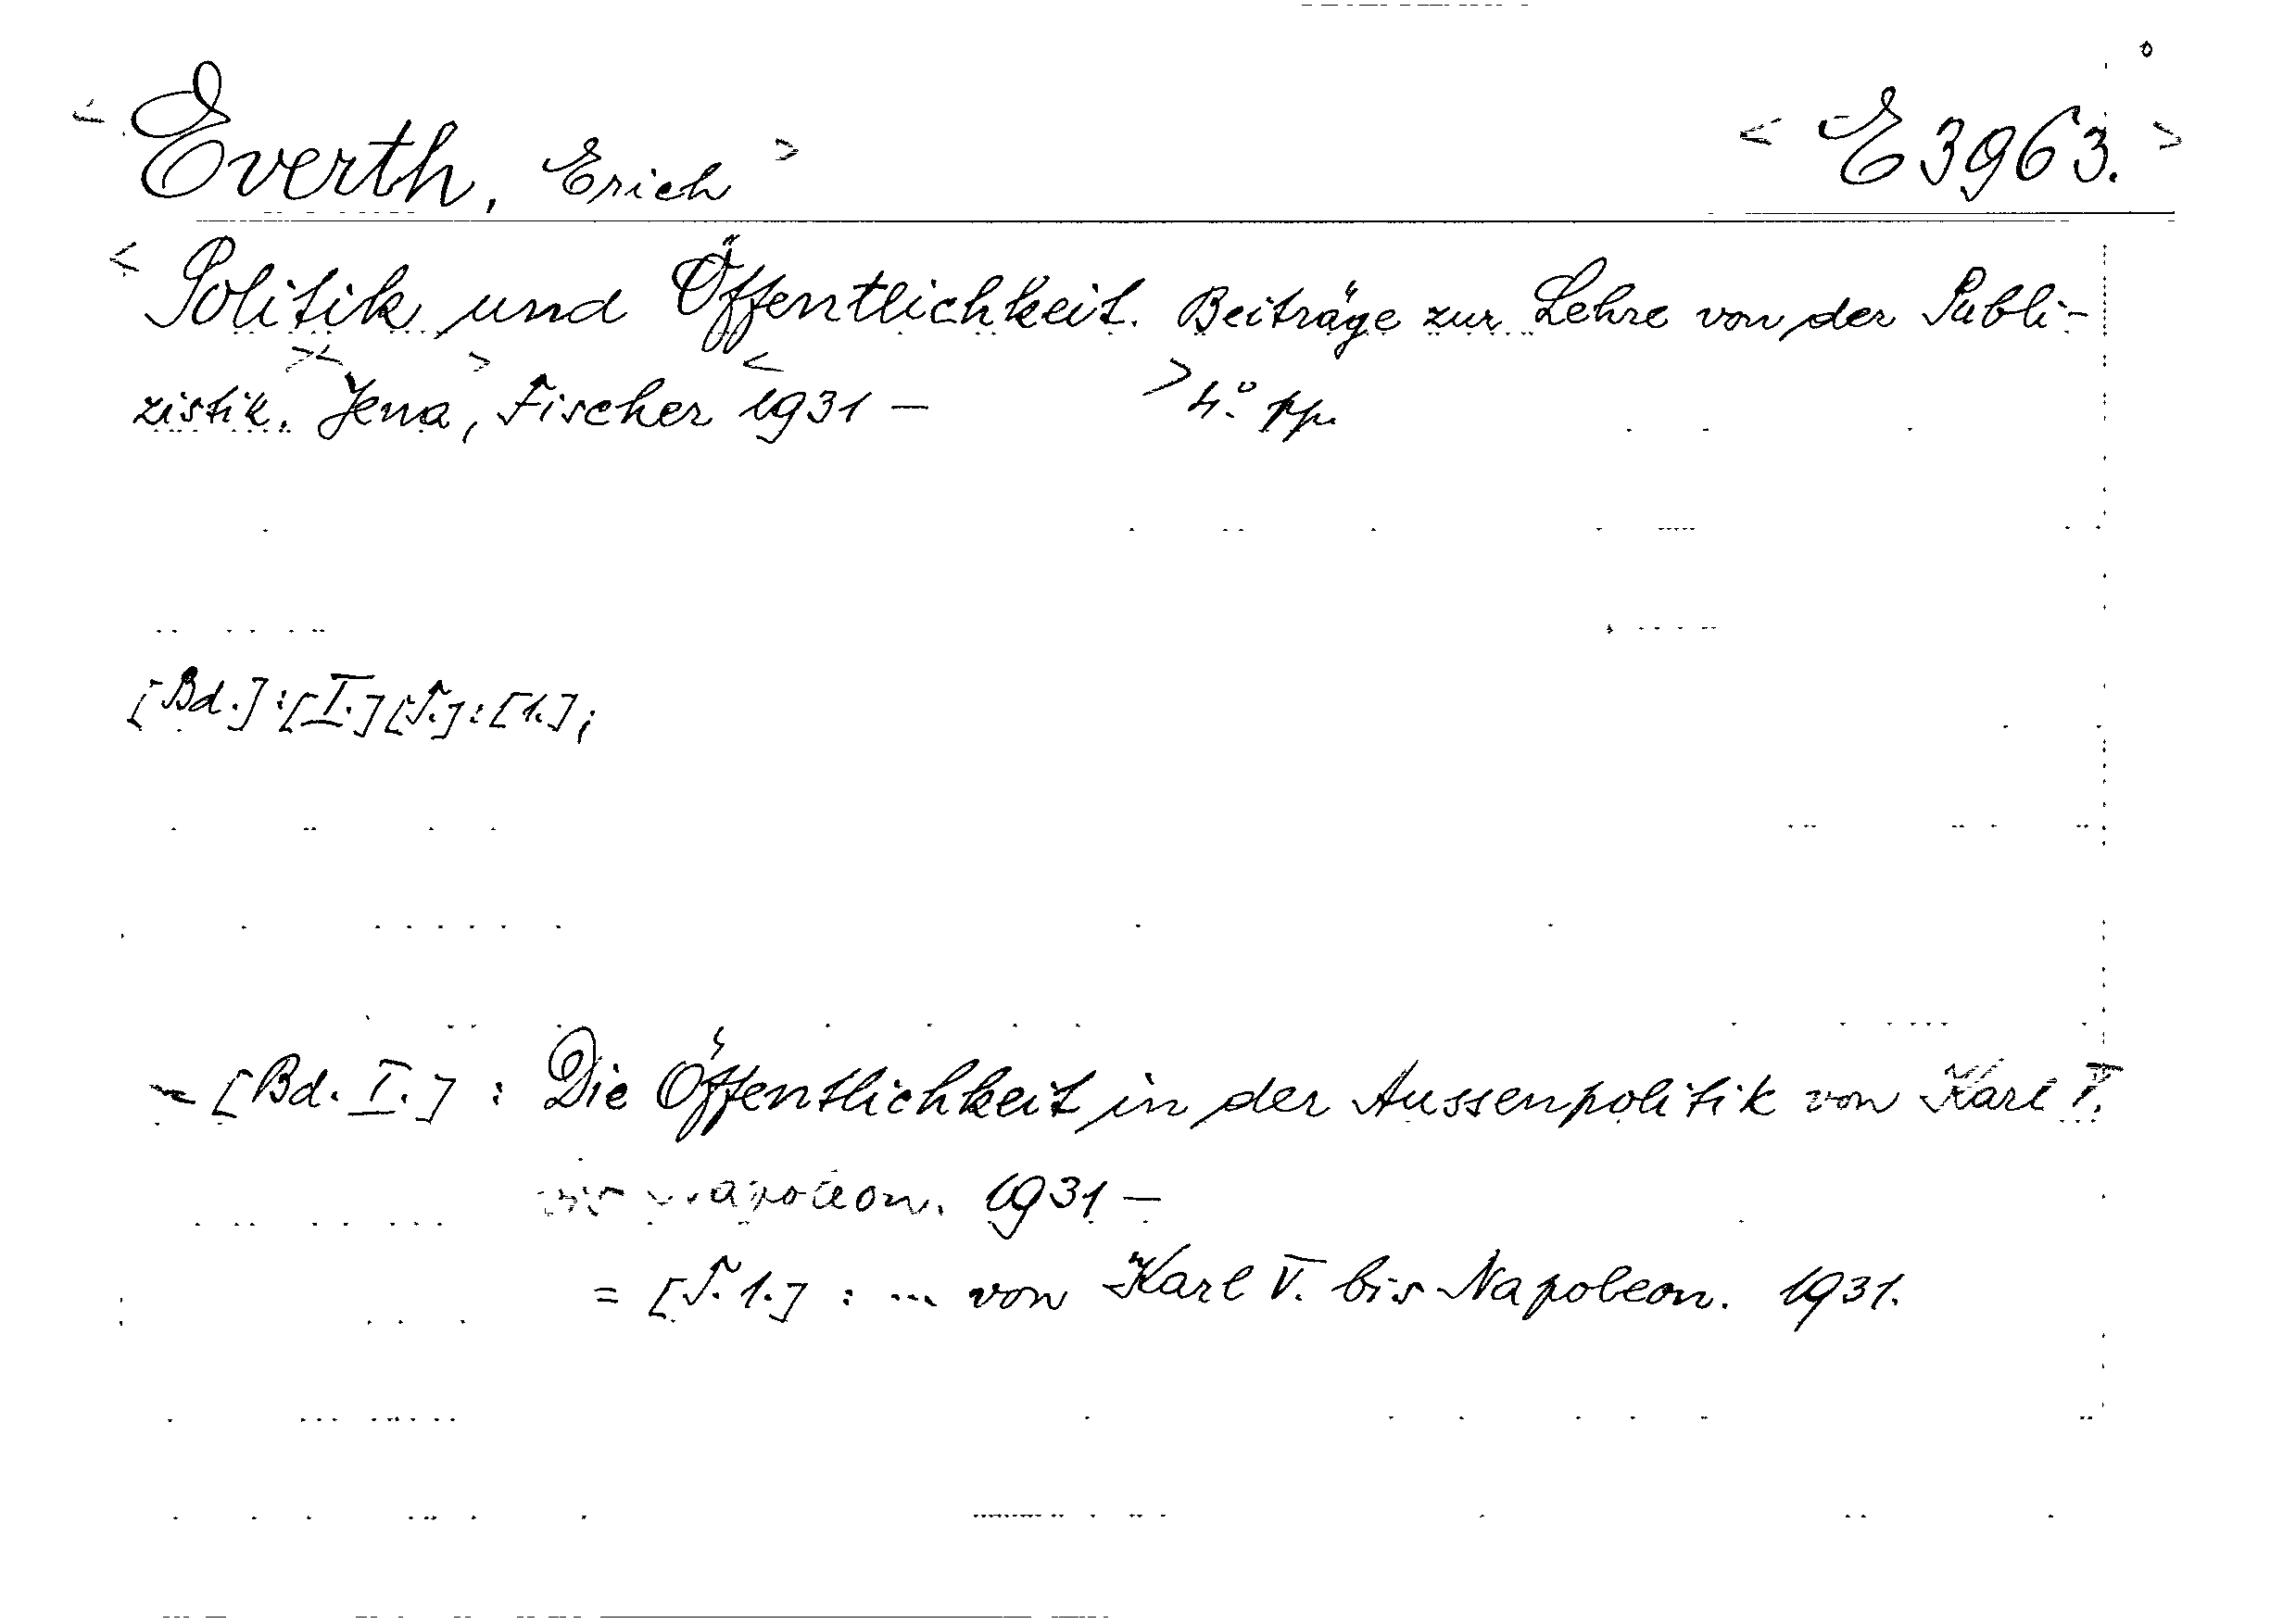 < Everth, Erich > < E 3963. >
< Politik und Öffentlichkeit. Beiträge zur Lehre von der Publi-
zistik. >< Jena, > Fischer < 1931 – > 4° pp.
[Bd.]:[I.][T.]:[1.];
= [Bd. I.] : Die Öffentlichkeit in der Aussenpolitik von Karl V.
bis Napoleon. 1931 –
= [T. 1.] : ... von Karl V. bis Napoleon. 1931.